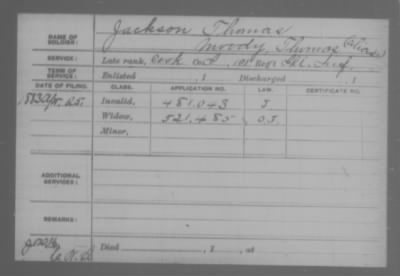 NAME OF SOLDIER:
Jackson Thomas
Moody, Thomas (Alias)
SERVICE:
Late rank, Cook Regt Inf.
TERM OF SERVICE:
Enlisted , 1 Discharged , 1
DATE OF FILING. CLASS. APPLICATION NO. LAW. CERTIFICATE NO.
1883 Apr. 25. Invalid, 481,043 J
Widow, 521,485 OJ
Minor,
ADDITIONAL SERVICES:
REMARKS:
Died , 1 , at